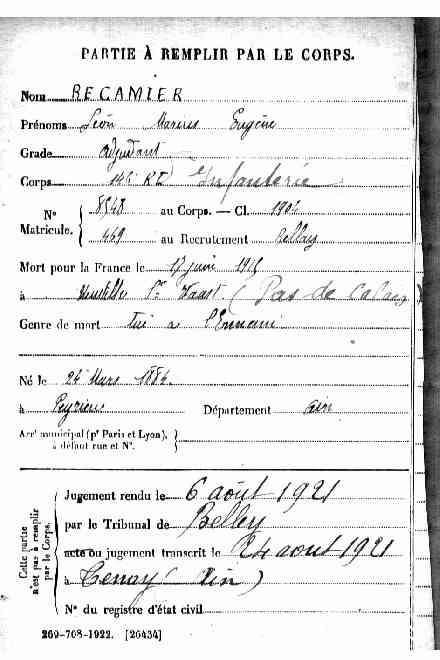 PARTIE À REMPLIR PAR LE CORPS.
Nom RECAMIER
Prénoms Léon Marius Eugène
Grade adjudant
Corps 146e RI Infanterie
N° Matricule. { 8548 au Corps. — Cl. 1904
449 au Recrutement Belley
Mort pour la France le 17 juin 1915
à Neuville St Vaast (Pas de Calais)
Genre de mort tué à l'Ennemi
Né le 24 Mars 1884
à Peyrieu Département Ain
Arrt municipal (pr Paris et Lyon), à défaut rue et N°. }
Cette partie n'est pas à remplir par le Corps.
Jugement rendu le 6 août 1921
par le Tribunal de Belley
acte ou jugement transcrit le 24 aout 1921
à Tenay (Ain)
N° du registre d'état civil
269-708-1922. [26434]